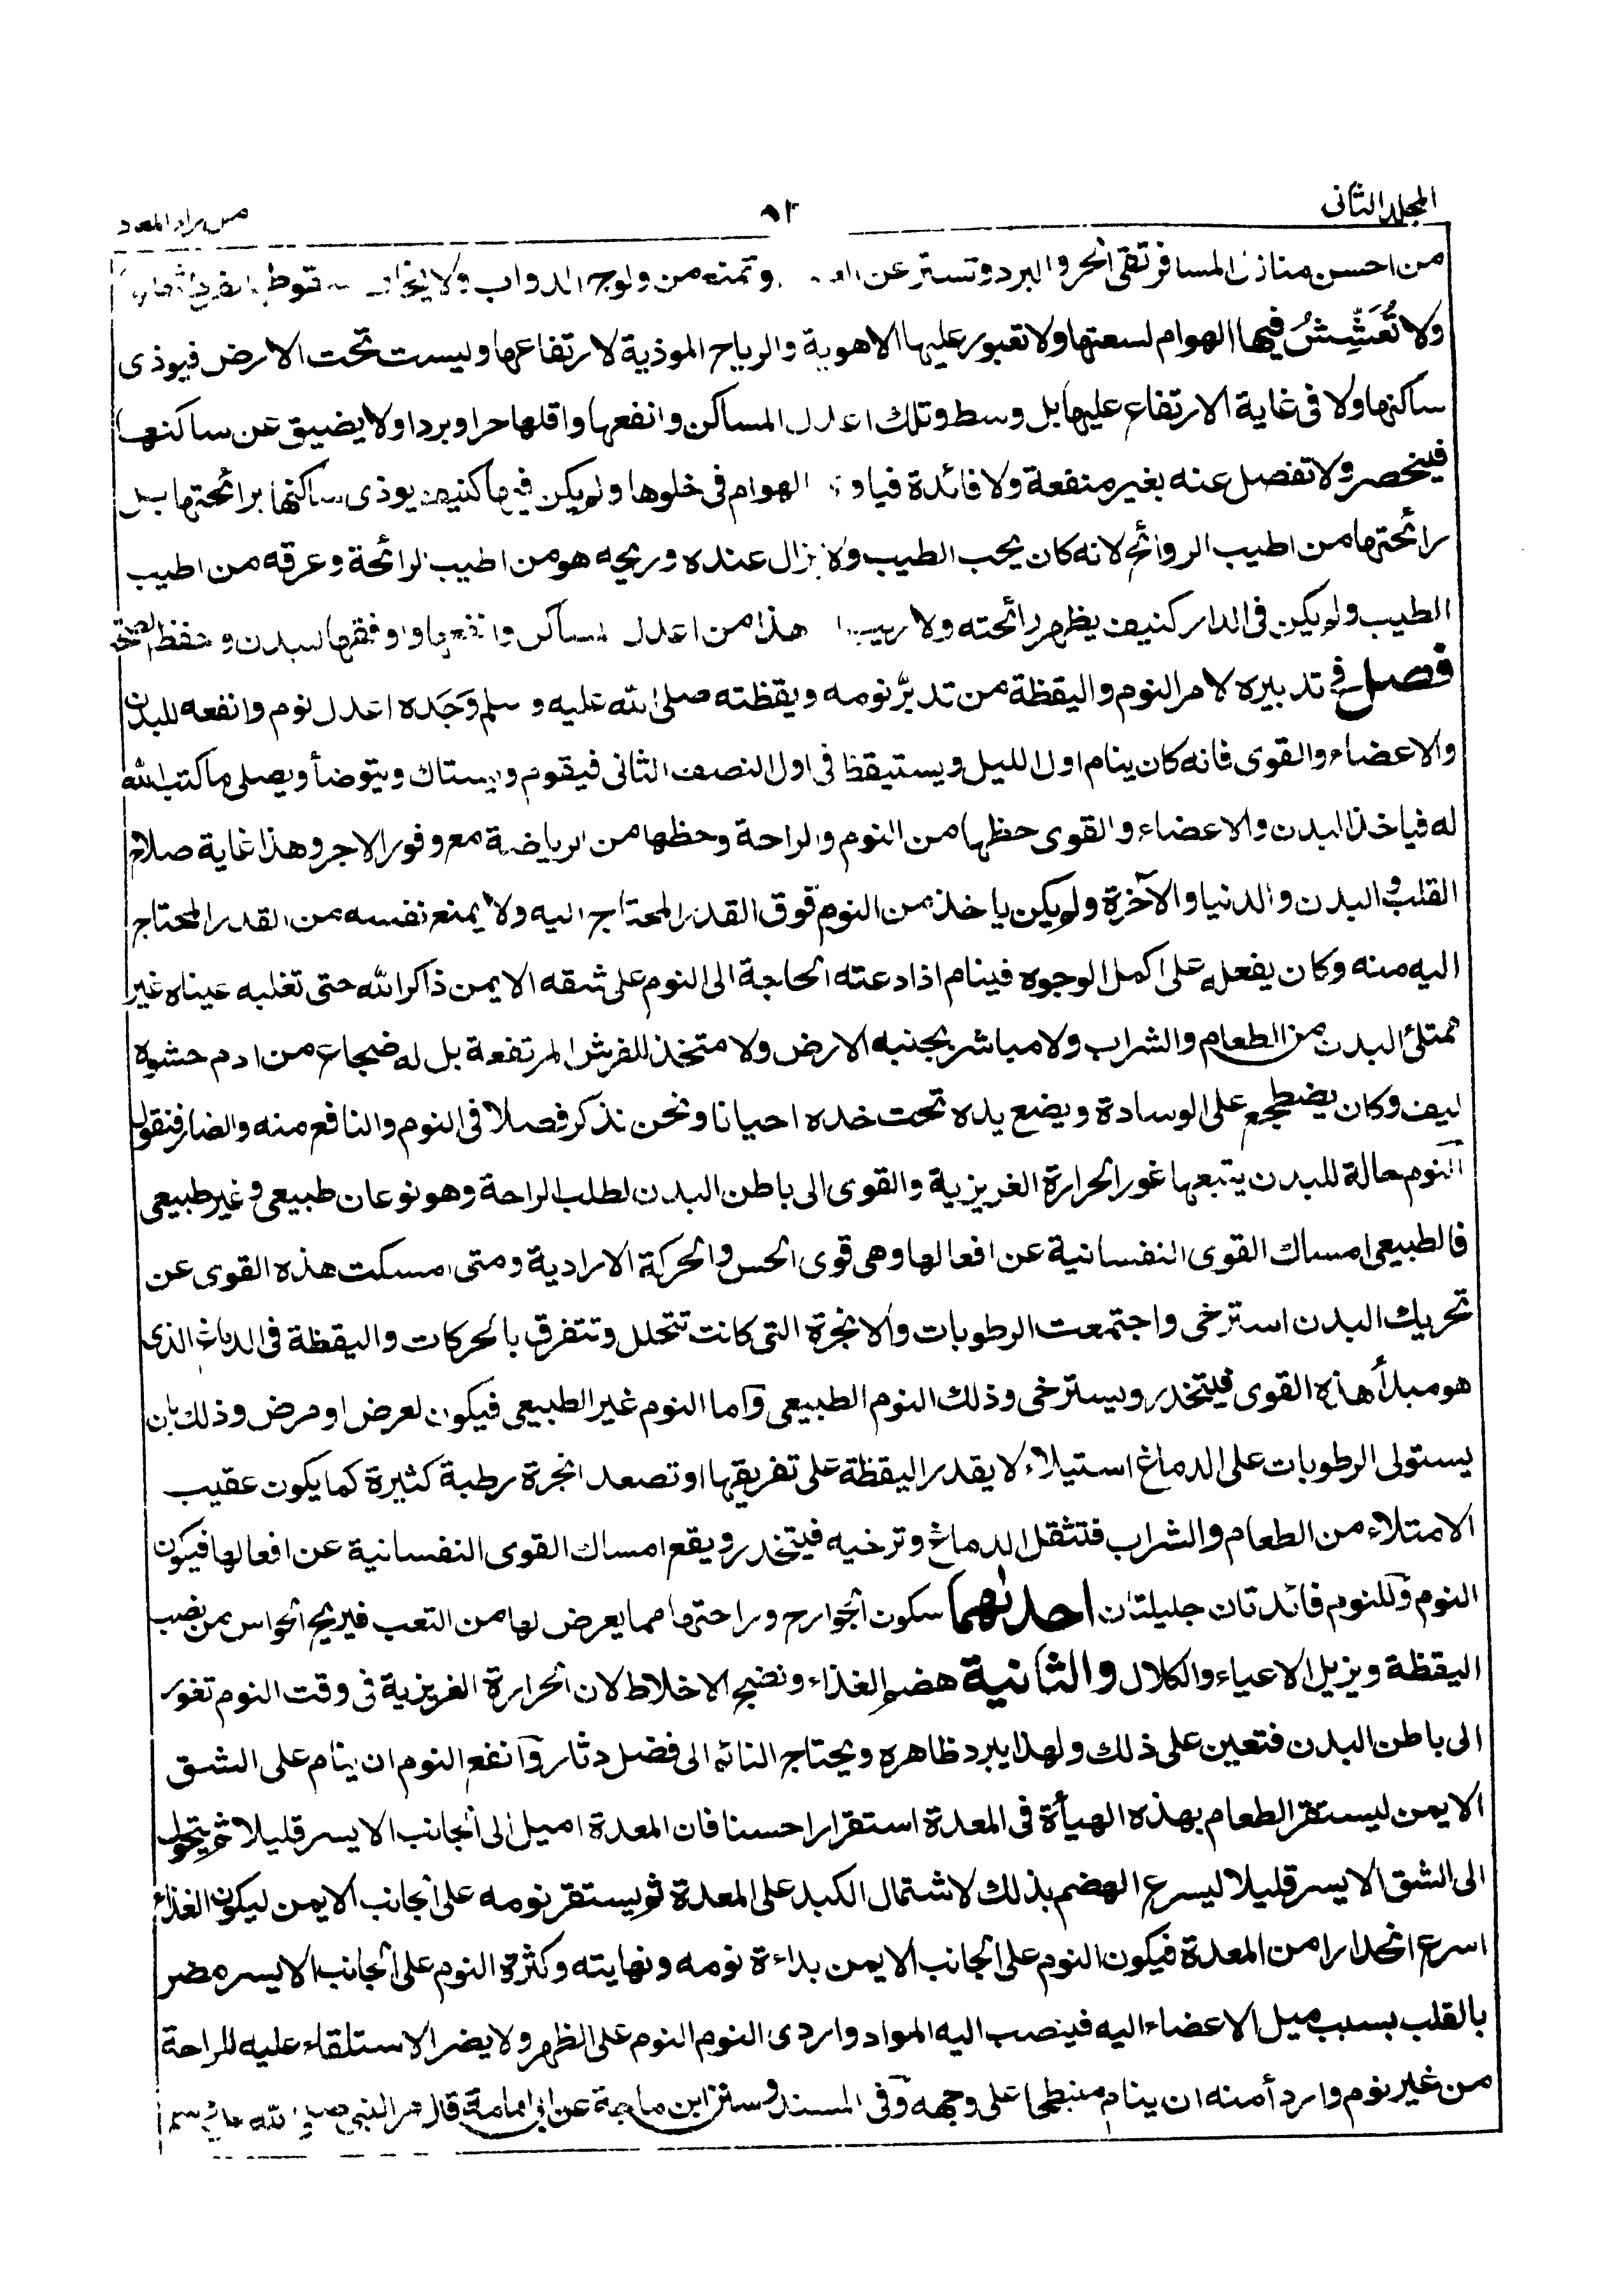 المجلد الثانى
من احسن منازل المسافر تقى الحر والبرد وتستر عن وتمنع من ولوج الدواب ولا يخاف سقوطها
ولا تُعَشِّشُ فيها الهوام لسعتها ولا تعبور عليها الاهوية والرياح الموذية لارتفاعها وليست تحت الارض فيوذى
ساكنها ولا فى غاية الارتفاع عليها بل وسط وتلك اعدل المساكن وانفعها واقلها حرا وبردا ولا يضيق عن ساكنها
فينحصر ولا تفضل عنه بغير منفعة ولا فائدة فياو الهوام فى خلوها ولم يكن فيها كنيف يوذى ساكنها برائحتها بل
رائحتها من اطيب الروائح لانه كان يحب الطيب ولا يزال عنده وريحه هو من اطيب الرائحة وعرقه من اطيب
الطيب ولم يكن فى الدار كنيف يظهر رائحته ولا ريب هذا من اعدل المساكن وانفعها واوفقها للبدن وحفظ الصحة
فصل فى تدبيره لامر النوم واليقظة من تدبّر نومه ويقظته صلى الله عليه وسلم وَجَده اعدل نوم وانفعه للبدن
والاعضاء والقوى فانه كان ينام اول الليل ويستيقظ فى اول النصف الثانى فيقوم ويستاك ويتوضأ ويصلى ما كتب الله
له فياخذ البدن والاعضاء والقوى حظها من النوم والراحة وحظها من الرياضة مع وفور الاجر وهذا غاية صلاح
القلب والبدن والدنيا والآخرة ولم يكن ياخذ من النوم فوق القدر المحتاج اليه ولا يمنع نفسه من القدر المحتاج
اليه منه وكان يفعله على اكمل الوجوه فينام اذا دعته الحاجة الى النوم على شقه الايمن ذاكرا لله حتى تغلبه عيناه غير
ممتلئ البدن من الطعام والشراب ولا مباشر بجنبه الارض ولا متخذ للفرش المرتفعة بل له ضجاع من ادم حشوه
ليف وكان يضطجع على الوسادة ويضع يده تحت خده احيانا ونحن نذكر فصلا فى النوم والنافع منه والضار فنقول
النوم حالة للبدن يتبعها غور الحرارة الغريزية والقوى الى باطن البدن لطلب الراحة وهو نوعان طبيعى وغير طبيعى
فالطبيعى امساك القوى النفسانية عن افعالها وهى قوى الحس والحركة الارادية ومتى امسكت هذه القوى عن
تحريك البدن استرخى واجتمعت الرطوبات والابخرة التى كانت تتحلل وتتفرق بالحركات واليقظة فى الدماغ الذى
هو مبدأ هذه القوى فيتخدر ويسترخى وذلك النوم الطبيعى واما النوم غير الطبيعى فيكون لعرض او مرض وذلك بان
يستولى الرطوبات على الدماغ استيلاء لا يقدر اليقظة على تفريقها او تصعد ابخرة رطبة كثيرة كما يكون عقيب
الامتلاء من الطعام والشراب فتثقل الدماغ وترخيه فيتخدر ويقع امساك القوى النفسانية عن افعالها فيكون
النوم وللنوم فائدتان جليلتان احدىٰهما سكون الجوارح وراحتها مما يعرض لها من التعب فيريح الحواس من نصب
اليقظة ويزيل الاعياء والكلال والثانية هضم الغذاء ونضج الاخلاط لان الحرارة الغريزية فى وقت النوم تغور
الى باطن البدن فتعين على ذلك ولهذا يبرد ظاهره ويحتاج النائم الى فضل دثار وانفع النوم ان ينام على الشق
الايمن ليستقر الطعام بهذه الهيأة فى المعدة استقرارا حسنا فان المعدة اميل الى الجانب الايسر قليلا ثم يتحول
الى الشق الايسر قليلا ليسرع الهضم بذلك لاشتمال الكبد على المعدة ثم يستقر نومه على الجانب الايمن ليكون الغذاء
اسرع انحدارا من المعدة فيكون النوم على الجانب الايمن بداءة نومه ونهايته وكثرة النوم على الجانب الايسر مضر
بالقلب بسبب ميل الاعضاء اليه فينصب اليه المواد واردى النوم النوم على الظهر ولا يضر الاستلقاء عليه للراحة
من غير نوم واردأ منه ان ينام منبطحا على وجهه وفى المسند وسنن ابن ماجة عن ابى امامة قال مر النبى صلى الله عليه وسلم